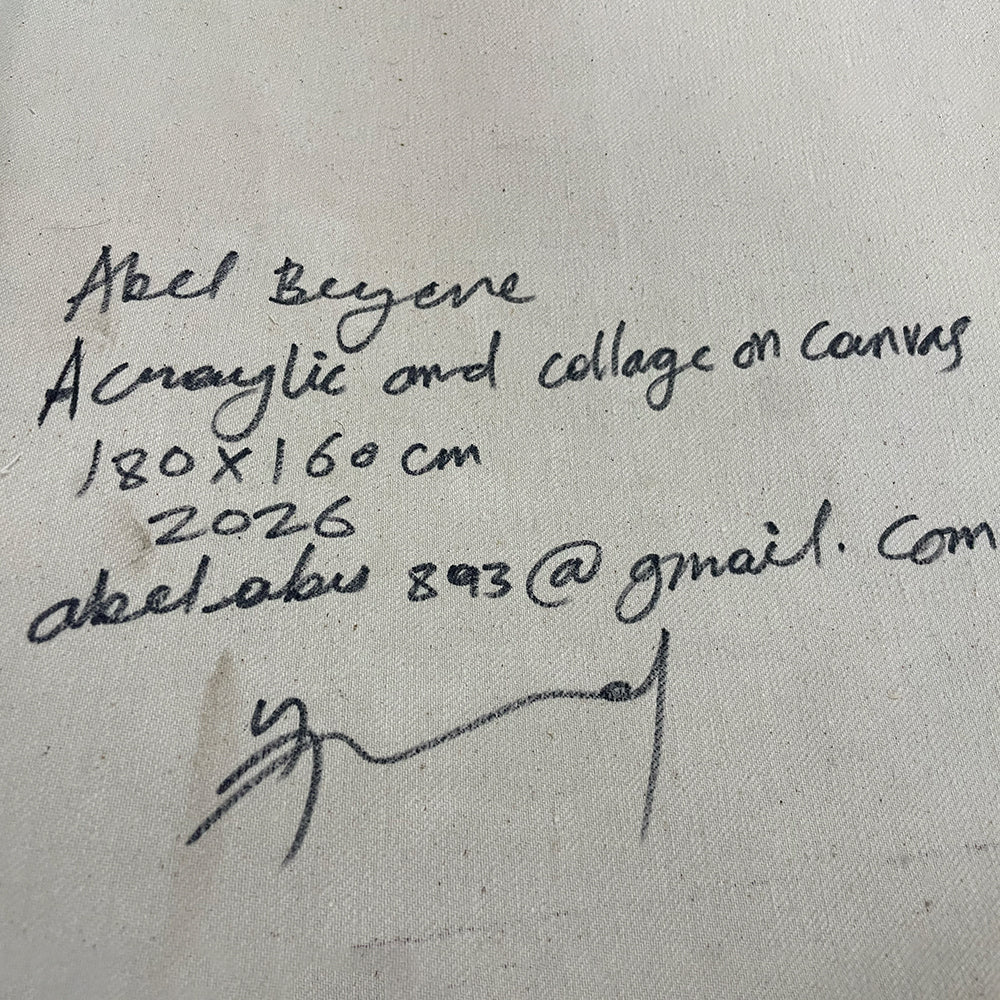 Abel Beyene
Acraylic and collage on canvas
180 X 160 cm
2026
abelabu893@gmail.com